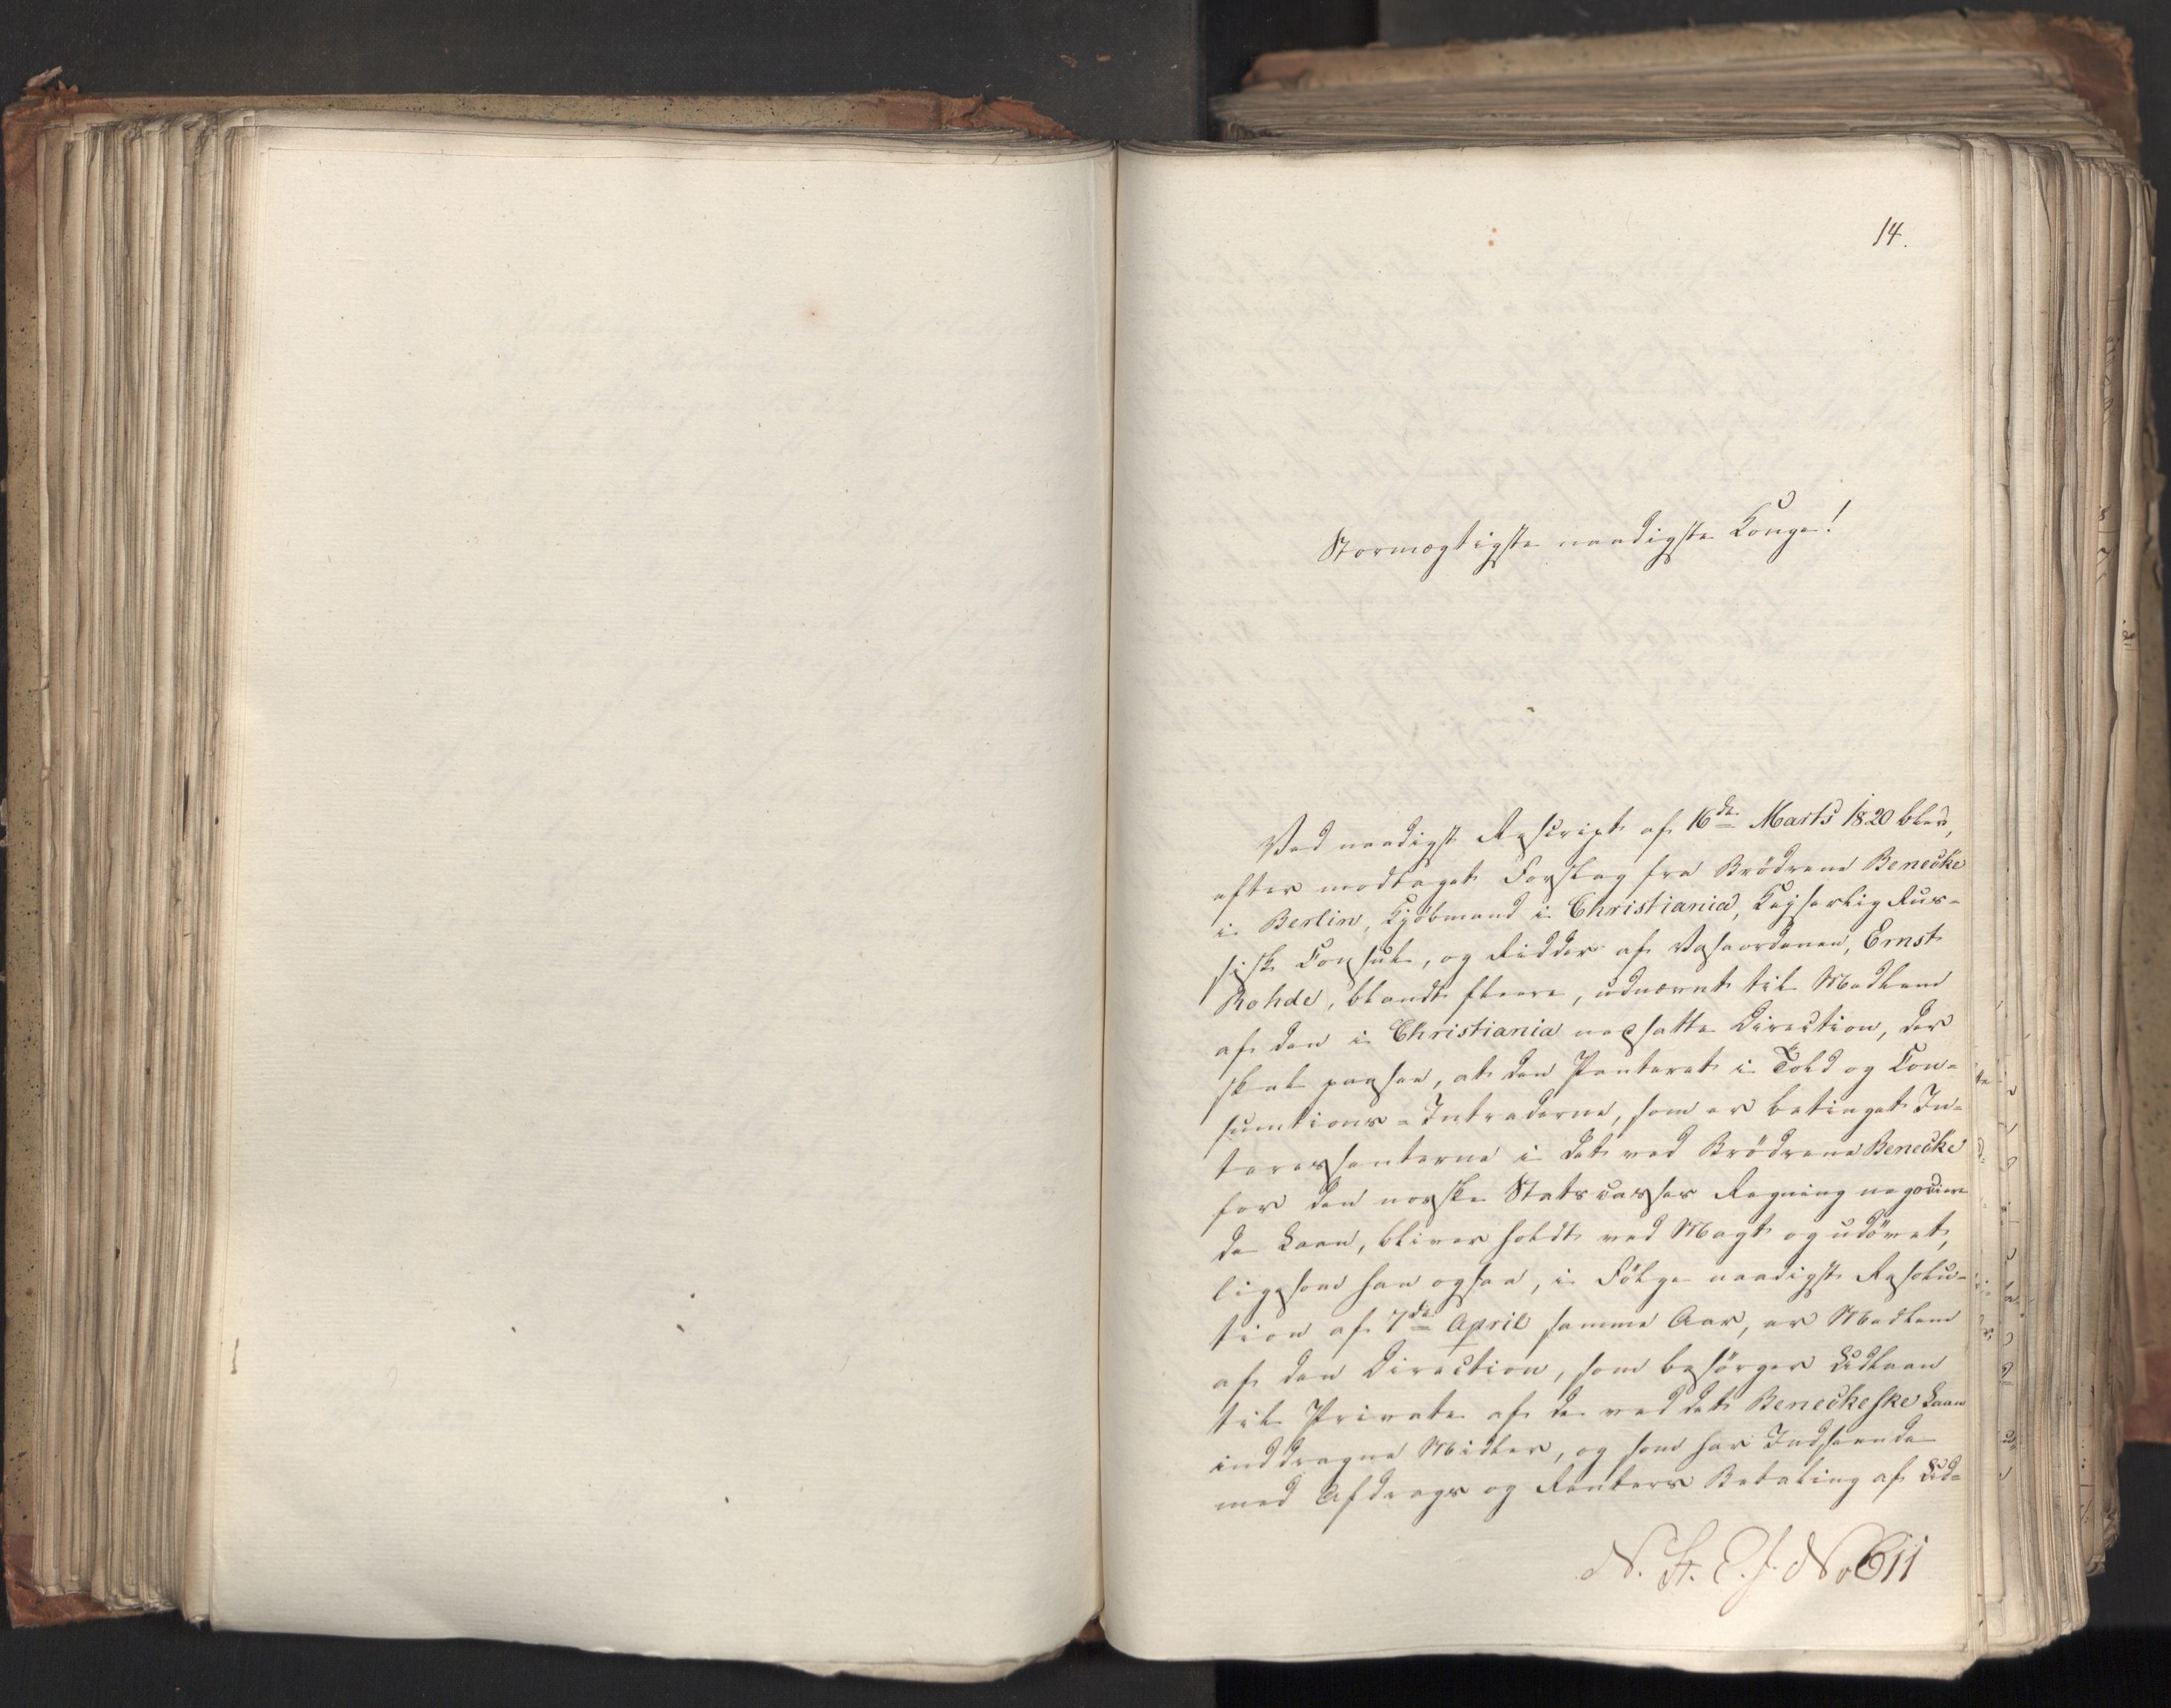 14.
Stormægtigste naadigste Konge!
Ved naadigst Rescript af 16de Marts 1820 blev,
efter modtaget Forslag fra Brödrene Benecke
i Berlin, Kjöbmand i Christiania, Kejserlig Rus-
sisk Consul, og Ridder af Vasaordenen, Ernst
Rohde, blandt fleere, udnævnt til Medlem
af den i Christiania nedsatte Direction, der
skal paasee, at den Panteret i Told og Con-
sumtions-Intraderne, som er betinget In-
teressenterne i det ved Brödrene Benecke
for den norske Statscasses Regning negociere
de Laan, bliver holdt ved Magt og udövet,
ligesom han ogsaa, i Fölge naadigst Resolu-
tion af 7de April samme Aar, er Medlem
af den Direction, som besörger Udlaan
til Private af de ved det Beneckeske Laan
inddragne Midler, og som har Indseende
med Afdrags og Renters Betaling af Ud-
N. St. E. J. No 611